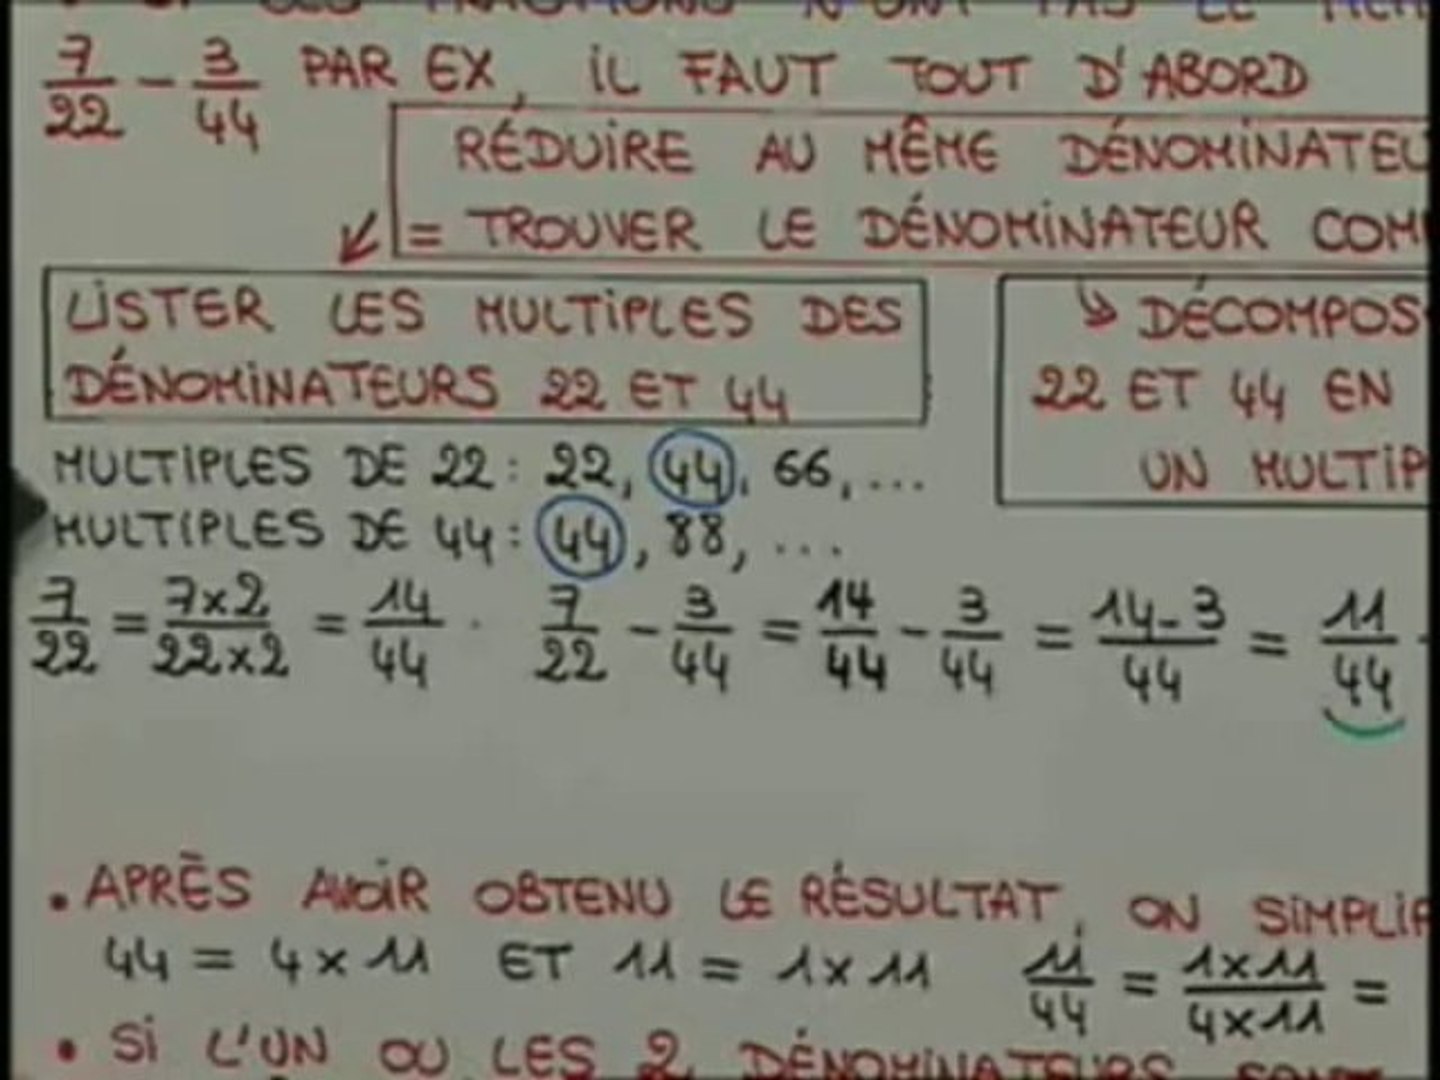 LES FRACTIONS N'ONT PAS LE
7/22 - 3/44 PAR EX, IL FAUT TOUT D'ABORD
RÉDUIRE AU MÊME DÉNOMINATEU
= TROUVER LE DÉNOMINATEUR COM
LISTER LES MULTIPLES DES
DÉNOMINATEURS 22 ET 44
DÉCOMPOS
22 ET 44 EN
UN MULTIP
MULTIPLES DE 22 : 22, 44, 66, ...
MULTIPLES DE 44 : 44, 88, ...
7/22 = 7×2/22×2 = 14/44 . 7/22 - 3/44 = 14/44 - 3/44 = 14-3/44 = 11/44
. APRÈS AVOIR OBTENU LE RÉSULTAT, ON SIMPLIF
44 = 4×11 ET 11 = 1×11 11/44 = 1×11/4×11 =
• SI L'UN OU LES 2 DÉNOMINATEURS SONT